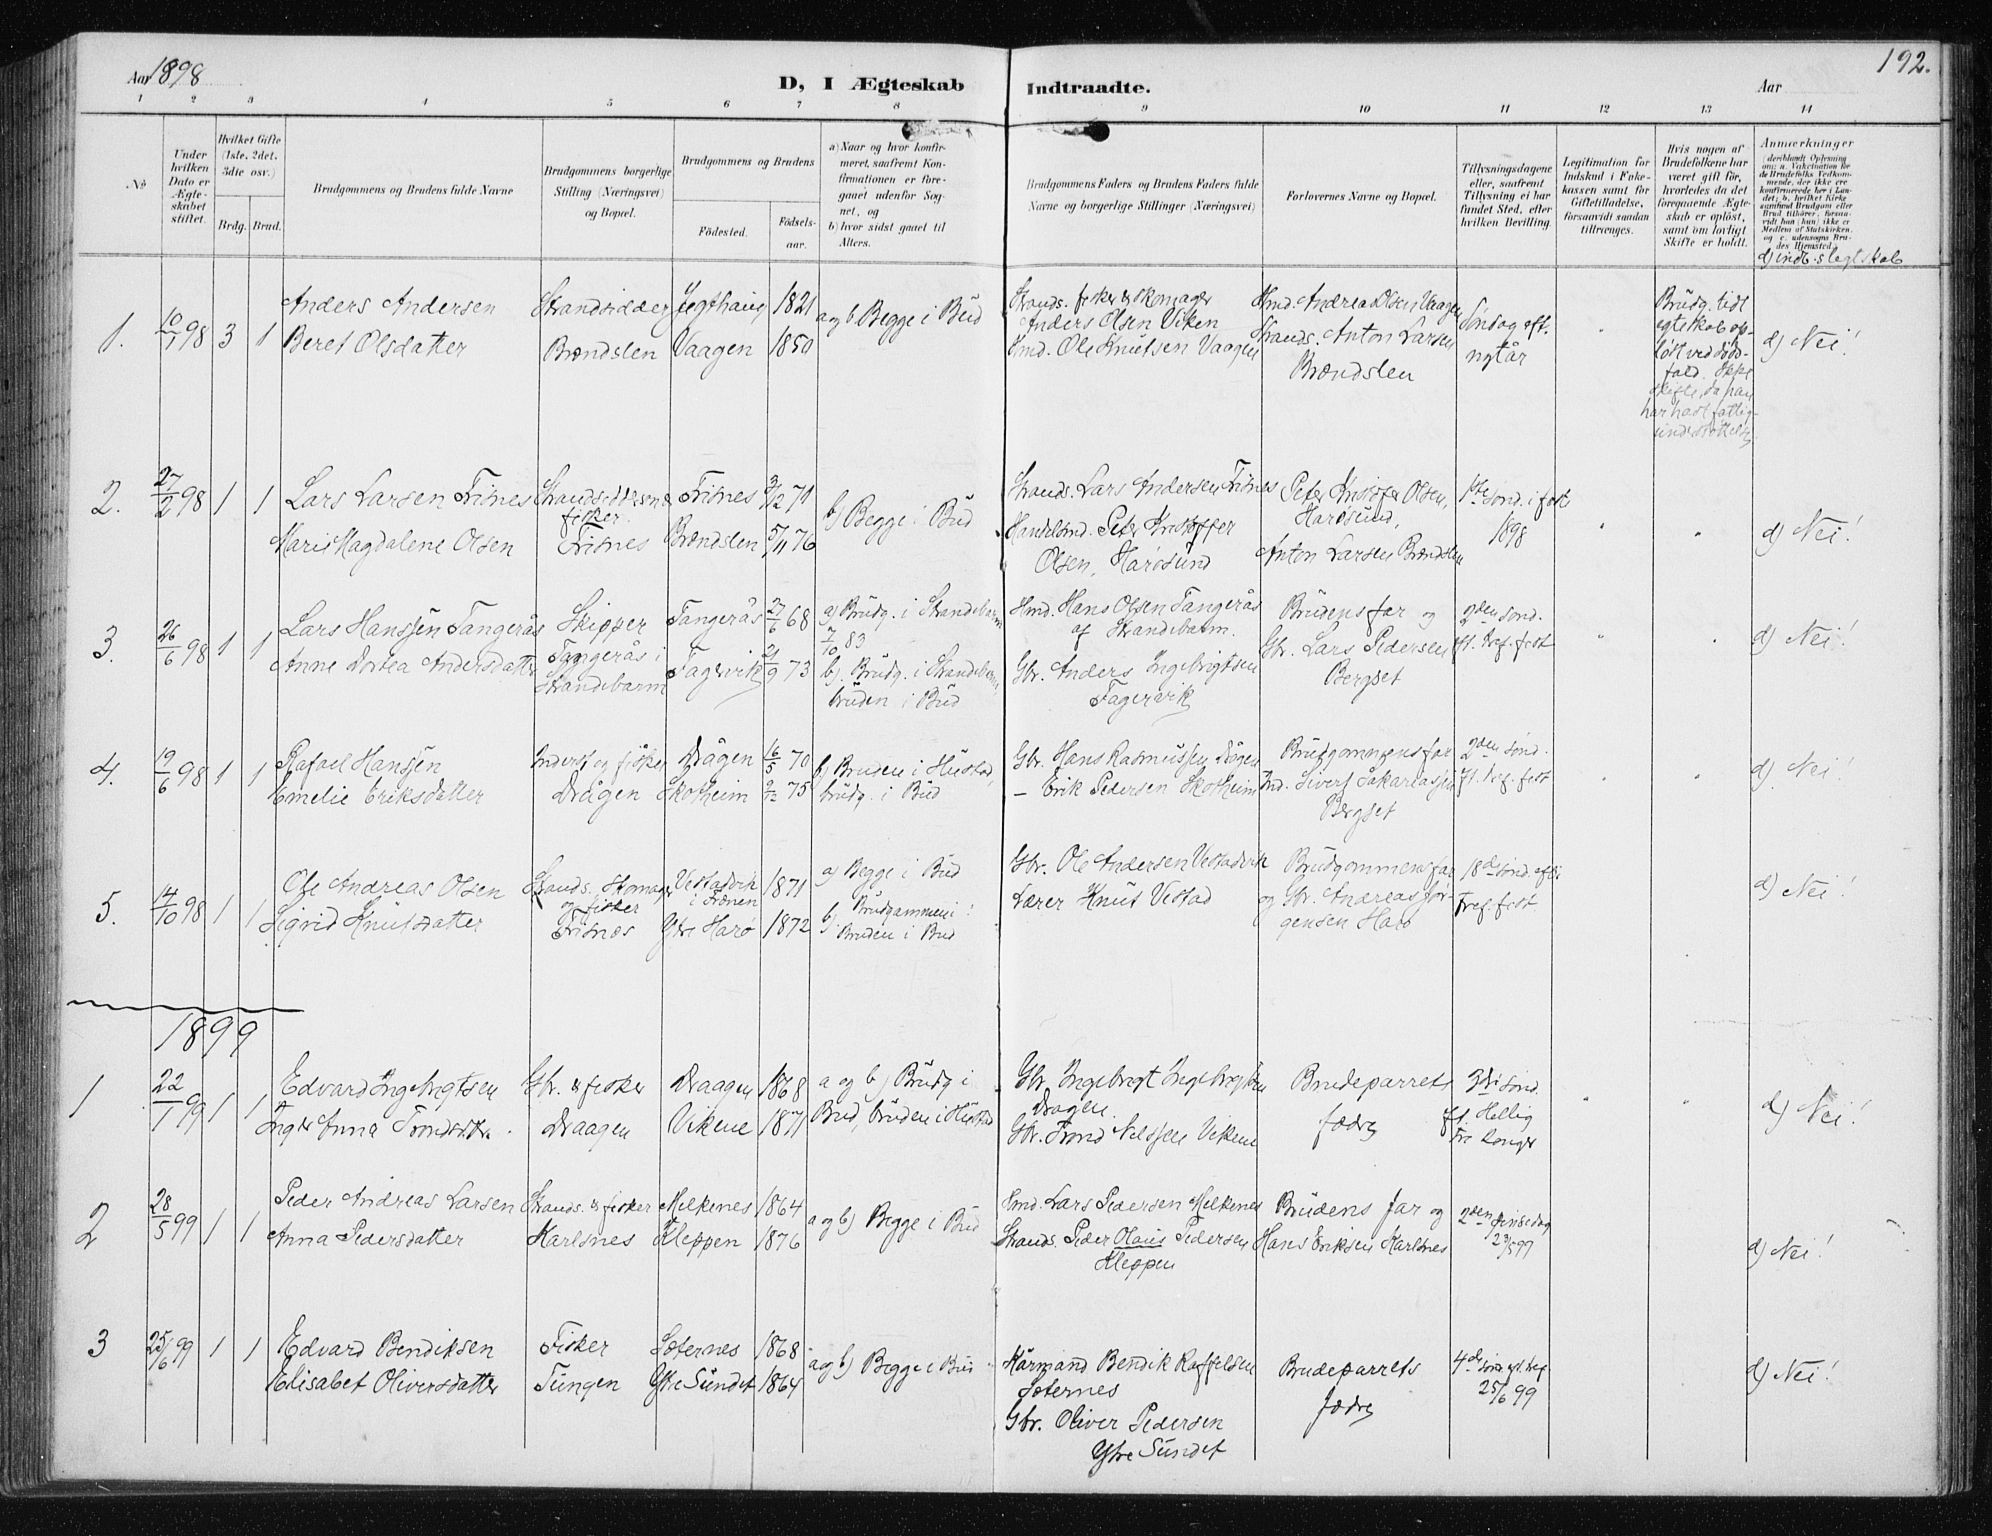 Aar 1898
D, I Ægteskab Indtraadte.
Aar
192.
1 2 3 4 5 6 7 8 9 10 11 12 13 14
No
Under hvilken Dato er Ægteskabet stiftet.
Hvilket Gifte (1ste, 2det, 3die osv.)
Brdg. Brud.
Brudgommens og Brudens fulde Navne
Brudgommens borgerlige Stilling (Næringsvei) og Bopæl.
Brudgommens og Brudens
Fødested.
Fødselsaar.
a) Naar og hvor konfirmeret, saafremt Konfirmationen er foregaaet udenfor Sognet, og
b) hvor sidst gaaet til Alters.
Brudgommens Faders og Brudens Faders fulde Navne og borgerlige Stillinger (Næringsvei)
Forlovernes Navne og Bopæl.
Tillysningsdagene eller, saafremt Tillysning ei har fundet Sted, efter hvilken Bevilling.
Legitimation for Indskud i Enkekassen samt for Giftetilladelse, forsaavidt saadan tiltrænges.
Hvis nogen af Brudefolkene har været gift før, hvorledes da det foregaaende Ægteskab er opløst, samt om lovligt Skifte er holdt.
Anmærkninger
d) indb. slegtskab
1. 10/1 98 3 1
Anders Andersen
Beret Olsdatter
Strandsidder
Brændslen
Jegthaug 1821
Vaagen 1850
a og b. Begge i Bud
Strands. fisker & skomager
Anders Olsen Viken
Hmd. Ole Knutsen Vaagen
Hmd. Andreas Olsen Vaagen
Strands. Anton Larsen
Brændslen
Søndag eft.
nytår
Brudg. tidl
egteskab op-
løst ved døds-
fald. Ikke
skifte, da han
har havt fattig-
understøttelse
d) Nei!
2. 27/2 98 1 1
Lars Larsen Trisnes
Marie Magdalene Olsen
fisker
Trisnes
Trisnes 3/12 71
Brændslen 5/11 76
b) Begge i Bud
Strands. Lars Andersen Trisnes
Handelsmd. Peter Kristoffer
Olsen, Harøsund
Peter Kristofer Olsen,
Harøsund,
Anton Larsen Brændslen
1ste sønd. i faste
1898
d) Nei!
3. 26/6 98 1 1
Lars Hanssen Tangerås
Anne Dortea Andersdatter
Skipper
Tangerås i
Strandebarm
Tangerås 27/6 68
Fagervik 21/9 73
a) Brudg. i Strandebarm
7/10 83
b). Brudg. i Strandebarm,
bruden i Bud
Hmd. Hans Olsen Tangerås
af Strandebarm.
Gbr. Anders Ingebrigtsen
Fagervik
Brudens far og
Gbr. Lars Pedersen
Bergset
2den sønd.
ft. tref. fest
d) Nei!
4. 19/6 98 1 1
Rafael Hanssen
Emelie Eriksdatter
Inderst og fisker
Drågen
Drågen 16/5 70
Skotheim 9/12 75
b) Bruden i Hustad,
brudg. i Bud
Gbr. Hans Rasmussen Drågen
— Erik Pedersen Skotheim
Brudgommens far
Ind. Sivert Sakariassen
Bergset
2den sønd.
ft. tref. fest
d). Nei!
5. 14/10 98 1 1
Ole Andreas Olsen
Sigrid Knutsdatter
Strands. Skomager
og fisker
Trisnæs
Vestadvik
i Frænen 1871
Ytre Harø 1872
a) Begge i Bud
b) Brudgammen i
Bruden i Bud
Gbr. Ole Andersen Vestadvik
Lærer Knut Vestad
Brudgommens far
og Gbr. Andreas Jør-
gensen Harø
18de sønd. eft.
tref. fest
d) Nei!
1899
1 22/1 99 1 1
Edvard Ingebrigtsen
Inger Anna Trondsdtr.
Gbr. & fisker
Draagen
Draagen 1868
Vikene 1871
a og b) Brudg i
Bud, bruden i Hustad
Gbr. Ingebrigt Ingebrigtsen
Dragen.
Gbr. Trond Nilssen Vikene
Brudeparrets
fædre
3die sønd.
ft. Hellig
Tre Konger
d) Nei!
2 28/5 99 1 1
Peder Andreas Larsen
Anna Pedersdatter
Strands. & fisker
Karlsnes
Melkenes 1864
Kleppen 1876
a og b) Begge i Bud
Hmd. Lars Pedersen Melkenes
Strands. Peder Olaus Pedersen
Kleppen
Brudens far og
Hans Eriksen Karlsnes
2den pinsedag
23/5 99
d) Nei!
3 25/6 99 1 1
Edvard Bendiksen
Elisabet Oliversdatter
Fisker
Tungen
Sæternes 1868
Ytre Sundet 1864
a og b) Begge i Bud
Kårmand Bendik Raffelsen
Sæternes
Gbr. Oliver Pedersen
Ytre Sundet
Brudeparrets
fædre
4de sønd. ft. tref.
25/6 99
d) Nei!